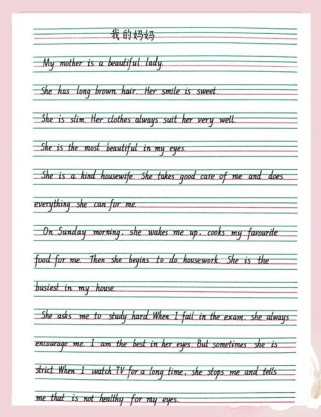 我的妈妈
My mother is a beautiful lady.
She has long brown hair. Her smile is sweet.
She is slim. Her clothes always suit her very well.
She is the most beautiful in my eyes.
She is a kind housewife. She takes good care of me and does
everything she can for me.
On Sunday morning, she wakes me up, cooks my favourite
food for me. Then she begins to do housework. She is the
busiest in my house.
She asks me to study hard. When I fail in the exam. she always
encourage me. I am the best in her eyes. But sometimes she is
strict. When I watch TV for a long time, she stops me and tells
me that is not healthy for my eyes.